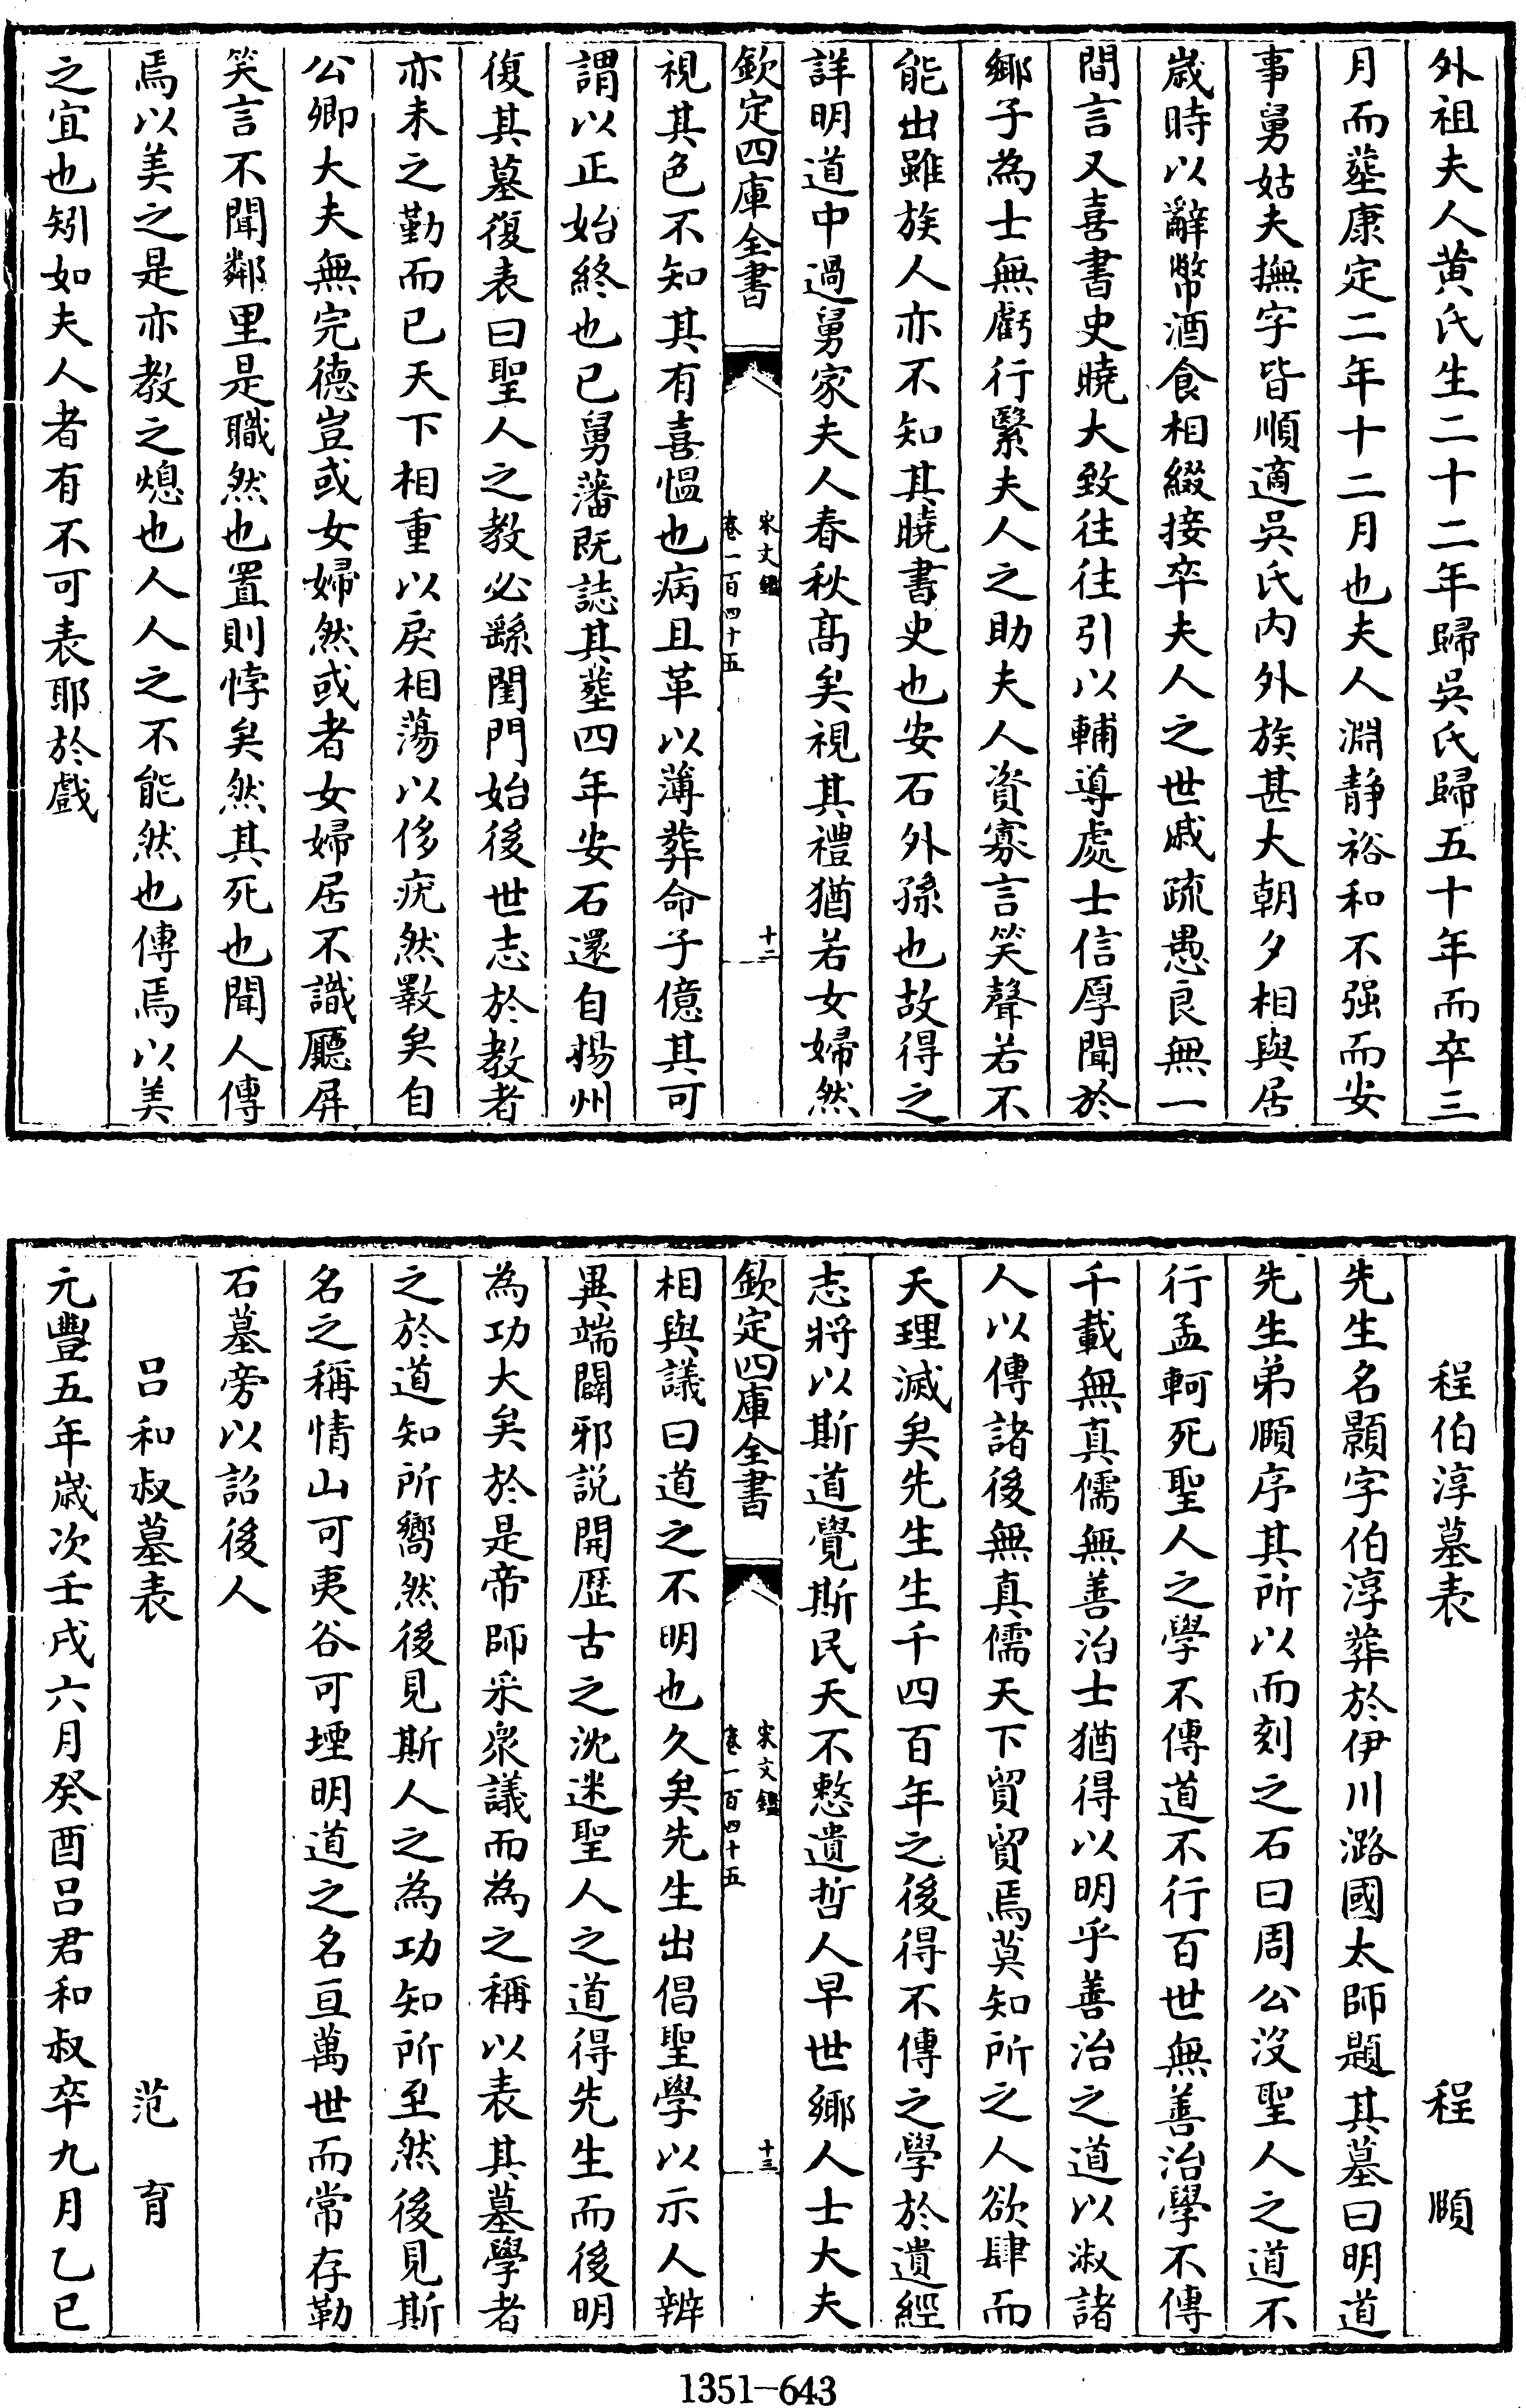 外祖夫人黄氏生二十二年歸吳氏歸五十年而卒三
月而塟康定二年十二月也夫人淵静裕和不强而安
事舅姑夫撫字皆順適吳氏内外族甚大朝夕相與居
歲時以辭幣酒食相綴接卒夫人之世戚疏愚良無一
間言又喜書史曉大致往往引以輔導處士信厚聞於
鄉子為士無虧行緊夫人之助夫人資寡言笑聲若不
能出雖族人亦不知其曉書史也安石外孫也故得之
詳明道中過舅家夫人春秋髙矣視其禮猶若女婦然
欽定四庫全書
宋文鑑
卷一百四十五
十二
視其色不知其有喜愠也病且革以薄葬命子億其可
謂以正始終也已舅藩既誌其塟四年安石還自揚州
復其墓復表曰聖人之教必繇閨門始後世志於教者
亦未之勤而已天下相重以戾相蕩以侈疣然斁矣自
公卿大夫無完徳豈或女婦然或者女婦居不識廳屏
笑言不聞鄰里是職然也置則悖矣然其死也聞人傳
焉以美之是亦教之熄也人人之不能然也傳焉以美
之宜也矧如夫人者有不可表耶於戲
程伯淳墓表
程頤
先生名顥字伯淳葬於伊川潞國太師題其墓曰明道
先生弟頤序其所以而刻之石曰周公没聖人之道不
行孟軻死聖人之學不傳道不行百世無善治學不傳
千載無真儒無善治士猶得以明乎善治之道以淑諸
人以傳諸後無真儒天下貿貿焉莫知所之人欲肆而
天理滅矣先生生千四百年之後得不傳之學於遺經
志將以斯道覺斯民天不慭遺哲人早世鄉人士大夫
欽定四庫全書
宋文鑑
卷一百四十五
十三
相與議曰道之不明也久矣先生出倡聖學以示人辨
異端闢邪説開歴古之沈迷聖人之道得先生而後明
為功大矣於是帝師采衆議而為之稱以表其墓學者
之於道知所嚮然後見斯人之為功知所至然後見斯
名之稱情山可夷谷可堙明道之名亘萬世而常存勒
石墓旁以詔後人
吕和叔墓表
范育
元豐五年歲次壬戌六月癸酉吕君和叔卒九月乙巳
1351-643